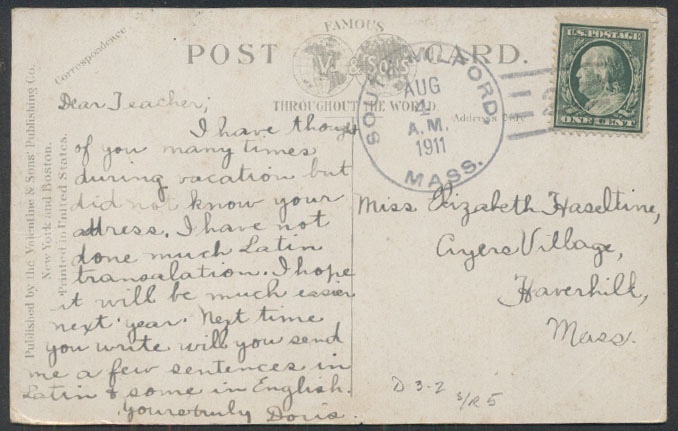 FAMOUS
POST CARD.
V & Sons
THROUGHOUT THE WORLD
Correspondence
Address Only
Published by the Valentine & Sons' Publishing Co.
New York and Boston.
Printed in United States.
SOUTH MILFORD
AUG
4
A.M.
1911
MASS.
U.S. POSTAGE
ONE CENT
Dear Teacher;
I have thought
of you many times
during vacation but
did not know your
attress. I have not
done much Latin
transalation. I hope
it will be much easier
next year. Next time
you write will you send
me a few sentences in
Latin & some in English.
Yours truly Doris.
Miss Elizabeth Haseltine,
Ayers Village,
Haverhill,
Mass.
D 3-2
S/R 5